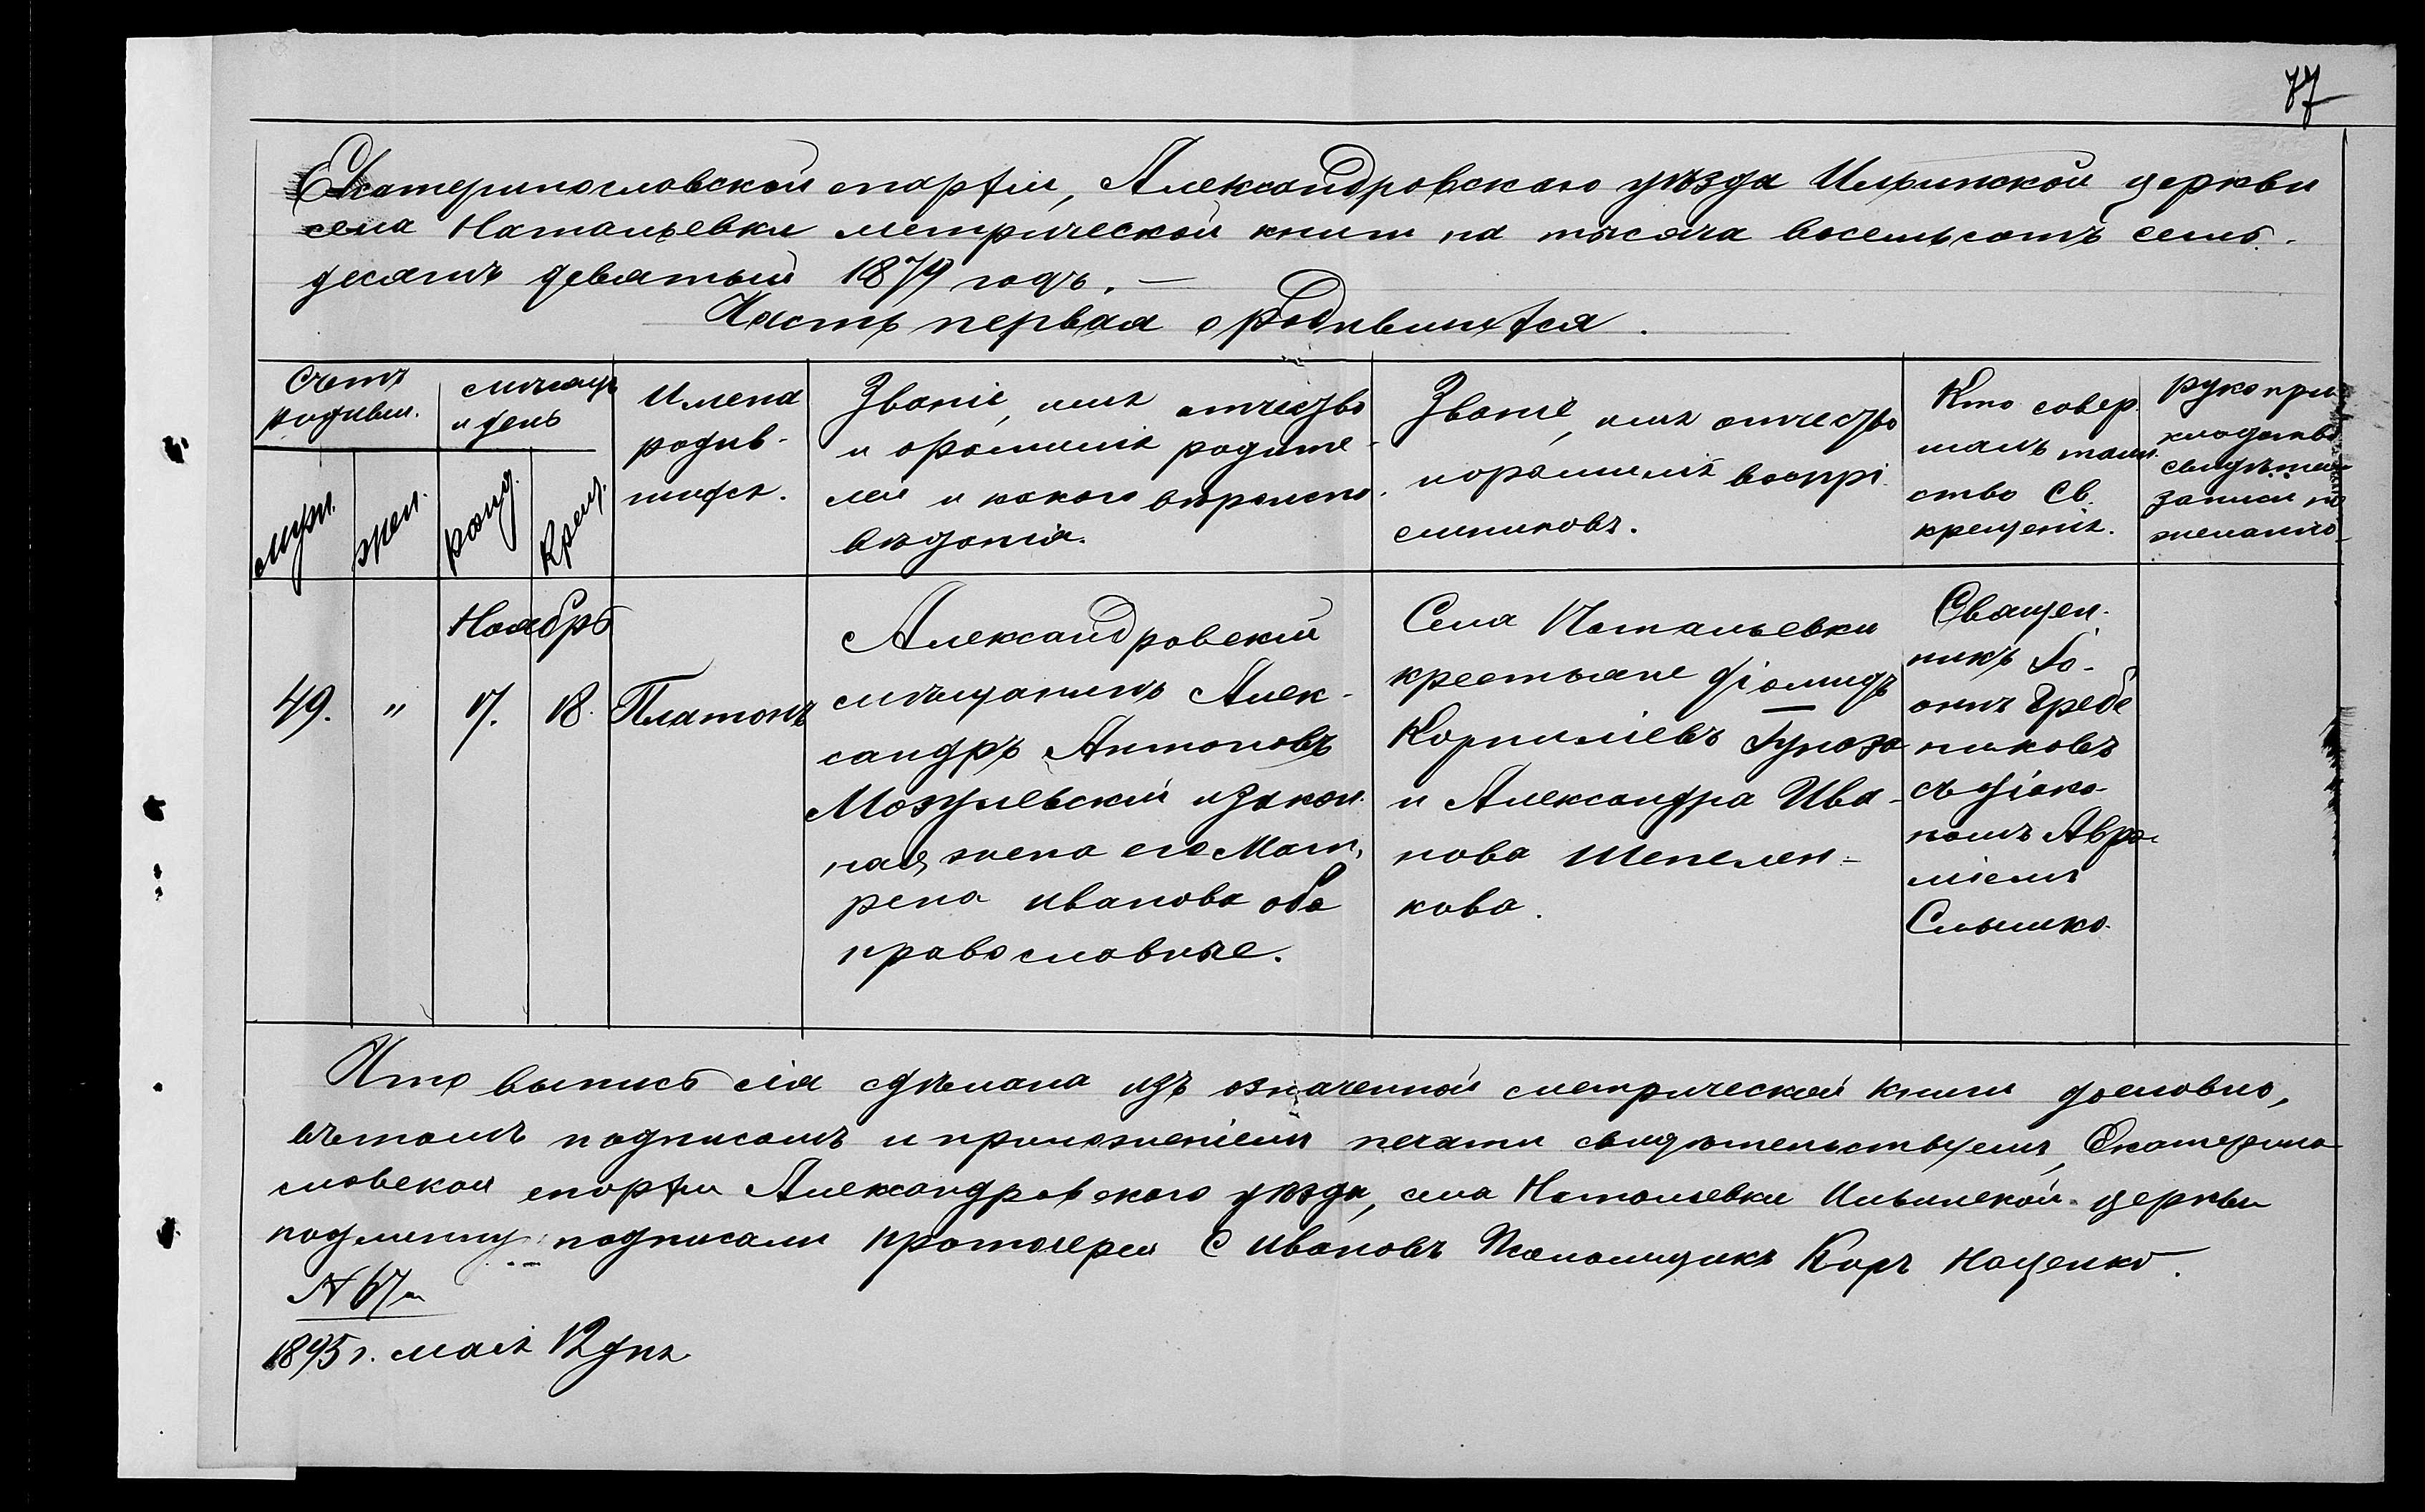 77
Екатеринославской епархіи, Александровскаго уѣзда Ильинской церкви
села Натальевки метрической книги на тысяча восемьсотъ семь-
десятъ девятый 1879 годъ. —
Часть первая о родившихся.
Счетъ родивш.
муж.
жен.
мѣсяцъ и день
рожд.
крещ.
Имена
родив-
шихся.
Званіе, имя отчество
и фамилія родите-
лей и какого вѣроиспо-
вѣданія.
Званіе, имя отчество
и фамилія воспрі-
емниковъ.
Кто совер-
шалъ таин-
ство Св.
крещенія.
Рукопри-
кладство
свидѣтел.
записи по
желанію
49.
"
Ноябрь
17.
18.
Платонъ
Александровскій
мѣщанинъ Алек-
сандръ Антоновъ
Можулевскій и закон-
ная жена его Мат-
рена Иванова оба
православные.
Села Натальевки
крестьяне Діомидъ
Корниліевъ
и Александра Ива-
нова Шепелен-
кова.
Священ-
никъ Іо-
аннъ Гребе
никовъ
съ діако-
номъ Авра-
міемъ
Слышко.
Что выпись сія сдѣлана изъ означенной метрической книги дословно,
въ томъ подписомъ и приложеніемъ печати свидѣтельствуемъ, Екатерино
славской епархіи Александровскаго уѣзда, села Натальевки Ильинской церкви
подлинну подписали протоіерей С Ивановъ Псаломщикъ Кор Нощенко.
N 67
1895 г. мая 12 дня